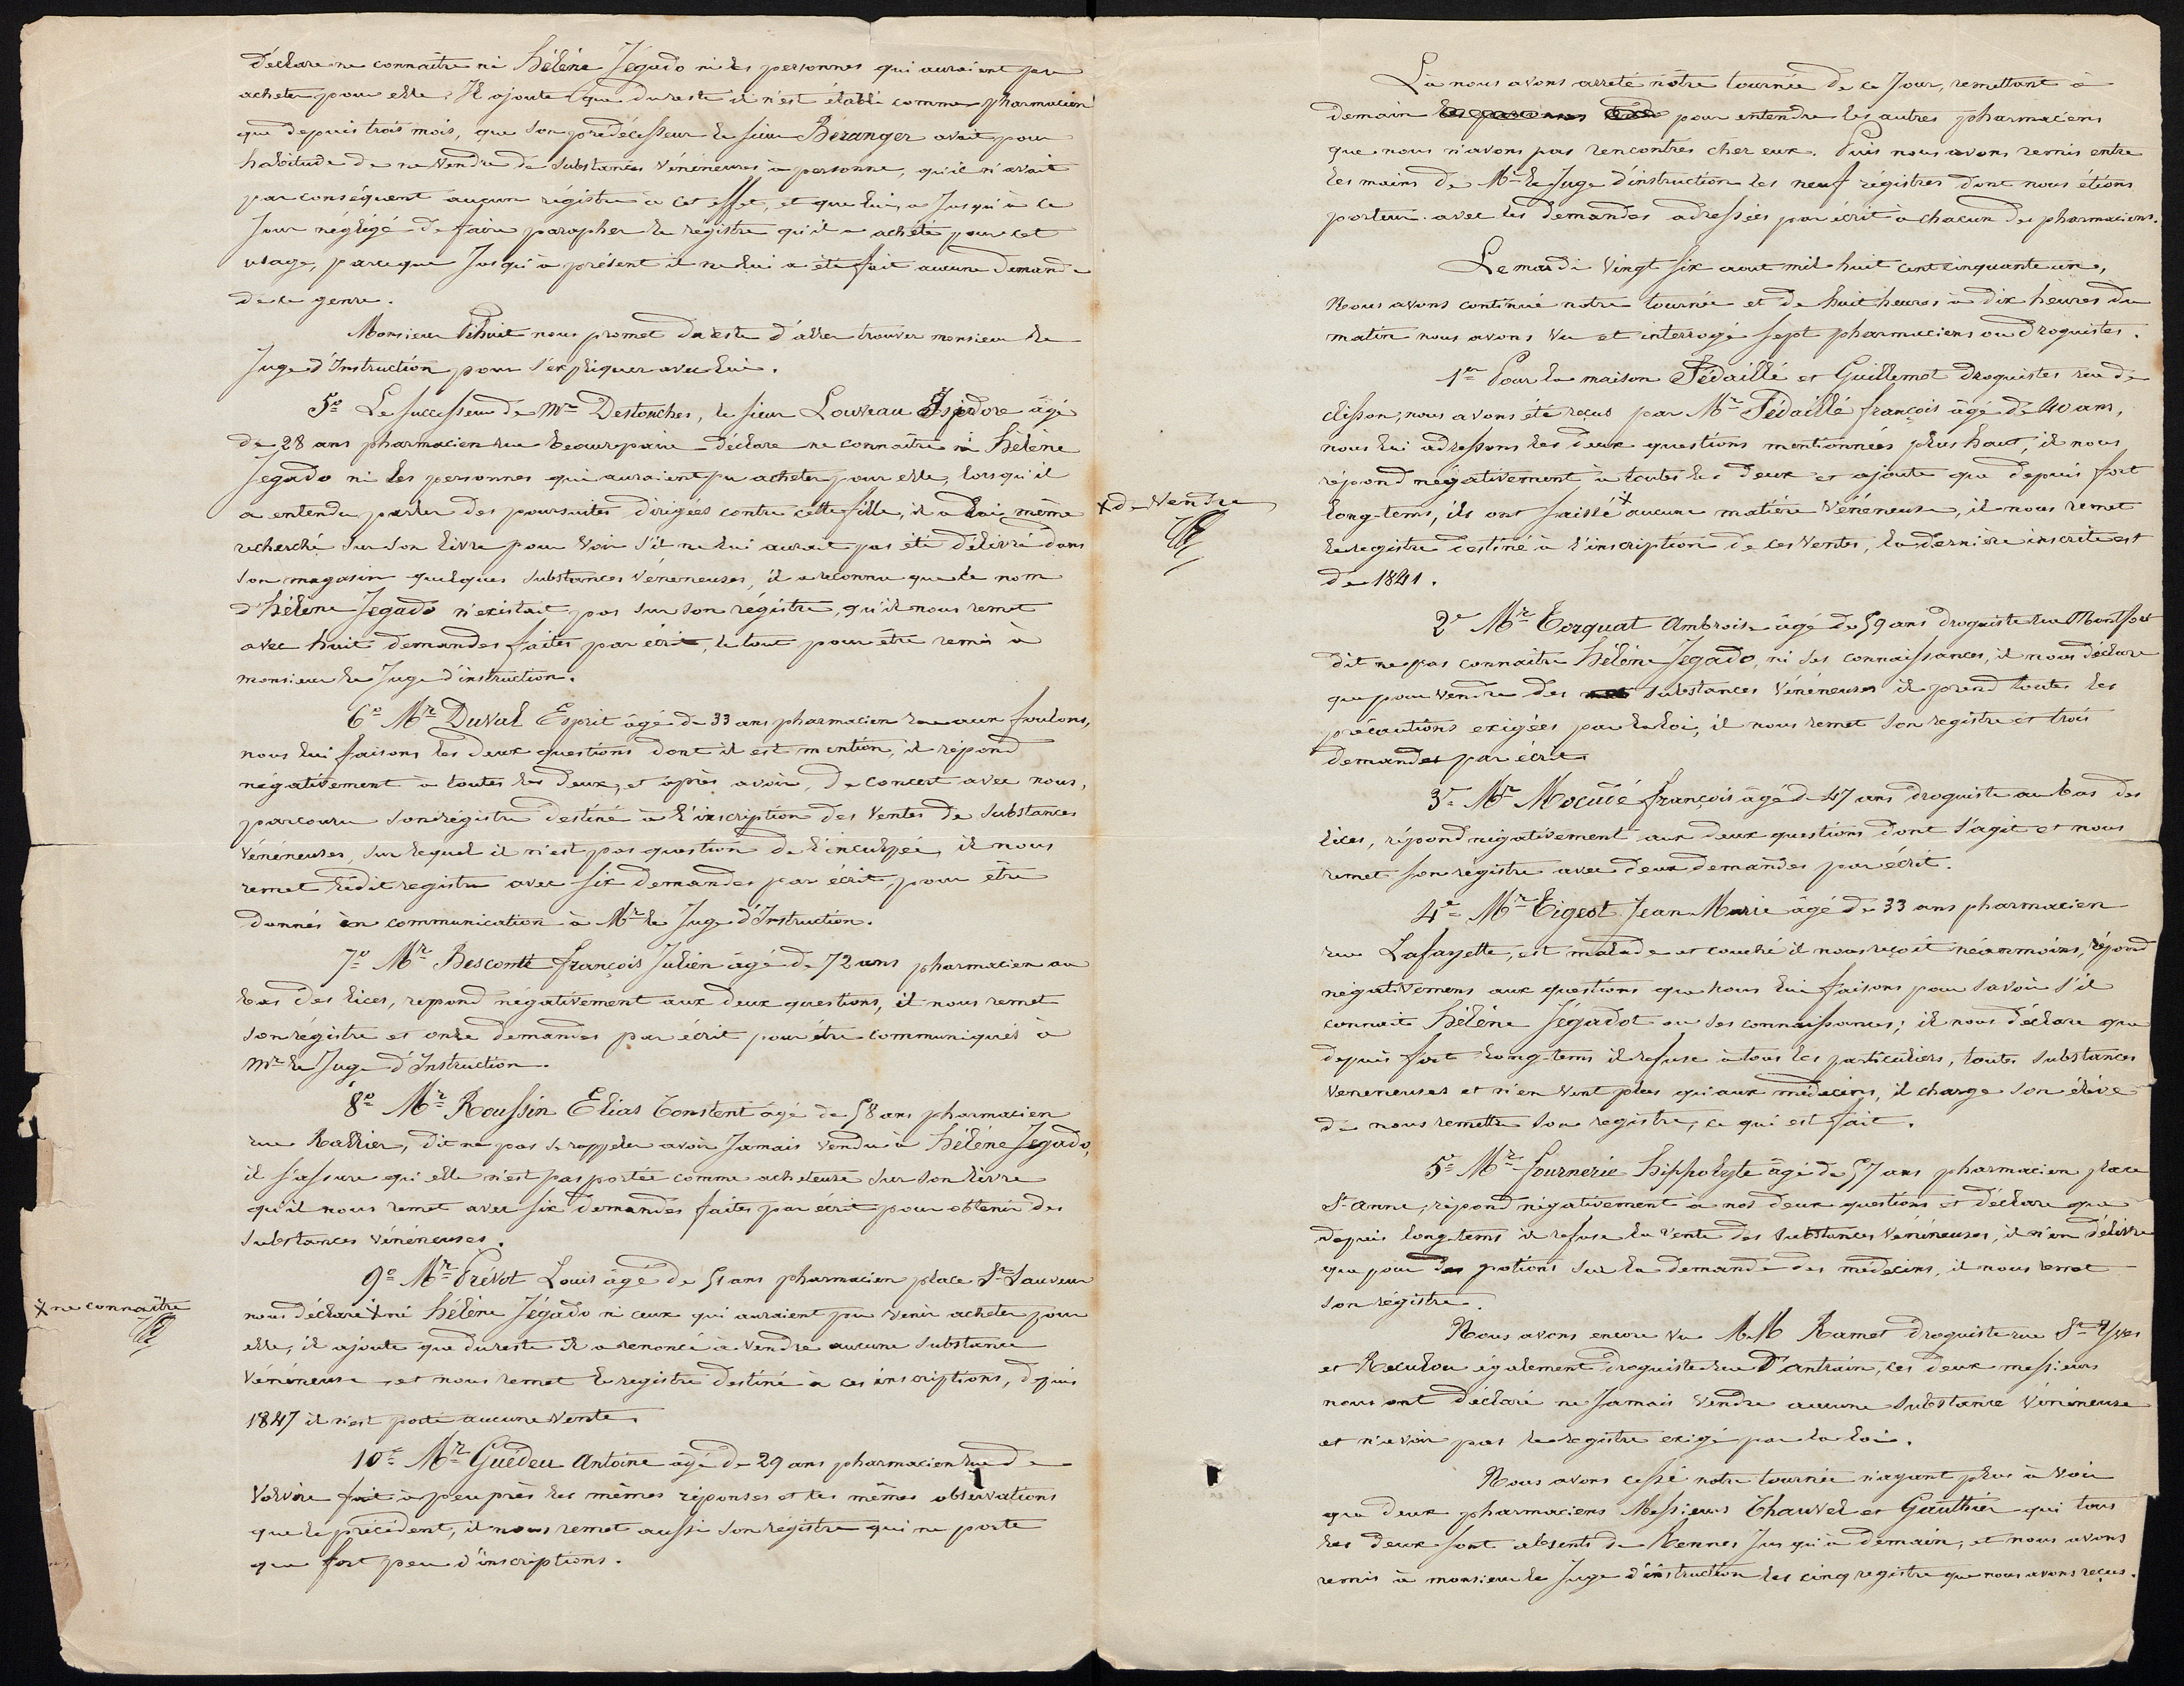 déclare ne connaitre ni Hélène Jégado ni les personnes qui auraient pu
acheter pour elle. Il ajoute que du reste il n'est établi comme pharmacien
que depuis trois mois, que son prédécesseur le sieur Béranger avait pour
habitude de ne vendre de substances vénéneuses à personne, qu'il n'avait
par conséquent aucun régistre à cet effet, et que lui, a Jusqu'à ce
Jour négligé de faire parapher le régistre qu'il a acheté pour cet
usage, parceque Jusqu'à présent il ne lui a été fait aucune demande
de ce genre.
Monsieur nous promet du reste d'aller trouver monsieur le
Juge d'Instruction pour s'expliquer avec lui.
5° Le successeur de Mr Destouches, le sieur Louveau Isidore âgé
de 28 ans pharmacien rue Beaurepaire déclare ne connaitre ni Hélène
Jegado ni les personnes qui auraient pu acheter pour elle, lorsqu'il
a entendu parler des poursuites dirigées contre cette fille, il a lui même
recherché sur son livre pour voir s'il ne lui aurait pas été délivré dans
son magasin quelques substances vénéneuses, il a reconnu que le nom
d'Hélène Jegado n'existait pas sur son régistre, qu'il nous remet
avec huit demandes faites par écrit, le tout pour être remis à
monsieur le Juge d'instruction.
6° Mr Duval Esprit âgé de 33 ans pharmacien rue aux foulons,
nous lui faisons les deux questions dont il est mention, il répond
négativement à toutes les deux, et après avoir, de concert avec nous,
parcouru son régistre destiné à l'inscription des ventes de substances
vénéneuses, sur lequel il n'est pas question de l'inculpée, il nous
remet ledit registre avec six demandes par écrit, pour être
donnés en communication à Mr le Juge d'Instruction.
7° Mr Besconte françois Julien âgé de 72 ans pharmacien au
bas des lices, repond négativement aux deux questions, il nous remet
son régistre et onze demandes par écrit pour être communiqués à
Mr le Juge d'Instruction.
8° Mr Roussin Elias Constent âgé de 58 ans pharmacien
rue Rallier, dit ne pas se rappeler avoir Jamais vendu à Hélène Jegado,
il s'assure qu'elle n'est pas portée comme acheteuse sur son livre
qu'il nous remet avec six demandes faites par écrit pour obtenir des
substances vénéneuses.
9° Mr Prévot Louis âgé de 51 ans pharmacien place St Sauveur
x ne connaître
nous déclare x ni Hélène Jégado ni ceux qui auraient pu venir acheter pour
elle, il ajoute que du reste il a renoncé à vendre aucune substance
vénéneuse, et nous remet le registre destiné à ces inscriptions, depuis
1847 il n'est porté aucune vente.
10° Mr Guédeu Antoine âgé de 29 ans pharmacien rue de
Volvire fait à peu près les mêmes réponses et les mêmes observations
que le précédent, il nous remet aussi son régistre qui ne porte
que fort peu d'inscriptions.
Là nous avons arrété nôtre tournée de ce Jour, remettant à
demain pour entendre les autres pharmaciens
que nous n'avons pas rencontrés chez eux. Puis nous avons remis entre
les mains de Mr le Juge d'instruction les neuf régistres dont nous étions
porteur avec les demandes adressées par écrit à chacun des pharmaciens.
Le mardi vingt six aout mil huit cent cinquante un,
Nous avons continué notre tournée et de huit heures à dix heures du
matin nous avons vu et interrogé sept pharmaciens ou droguistes.
1er Pour la maison Fédaillé et Guillemot droguistes rue de
clisson, nous avons été reçus par Mr Fédaillé françois âgé de 40 ans,
nous lui adressons les deux questions mentionnées plus haut, il nous
répond négativement à toutes les deux et ajoute que depuis fort
x de vendre
long-tems, ils ont laissé x aucune matière vénéneuse, il nous remet
le registre destiné à l'inscription de ces ventes, la dernière inscrite est
de 1841.
2e Mr Torquat Ambroise âgé de 59 ans droguiste rue Montfort
dit ne pas connaitre Hélène Jegado, ni ses connaissances, il nous déclare
que pour vendre des substances vénéneuses il prend toutes les
précautions exigées par la loi, il nous remet son registre et trois
demandes par écrit
3e Mr Mocudé françois âgé de 47 ans droguiste au bas des
lices, répond négativement aux deux questions dont s'agit et nous
remet son régistre avec deux demandes par écrit.
4e Mr Tigeot Jean Marie âgé de 33 ans pharmacien
rue Lafayette, est malade et couché il nous reçoit néanmoins, répond
négativemens aux questions que nous lui faisons pour savoir s'il
connait Hélène Jégadot ou ses connaissances; il nous déclare que
depuis fort long-tems il refuse à tous les particuliers, toutes substances
veneneuses et n'en vent plus qu'aux médecins, il charge son élève
de nous remettre son registre, ce qui est fait.
5e Mr fournerie Hippolyte âgé de 57 ans pharmacien place
St anne, répond négativement à nos deux questions et déclare que
depuis long-tems il refuse la vente des substances vénéneuses, il n'en délivre
que pour des potions sur la demande des médecins, il nous remet
son régistre.
Nous avons encore vu M.M Ramet droguiste rue St Yves
et Reculou également droguiste rue D'antrain, ces deux messieurs
nous ont déclaré ne Jamais vendre aucune substance vénéneuse
et n'avoir pas le registre exigé par la loi.
Nous avons cessé notre tournée n'ayant plus à voir
que deux pharmaciens Messieurs Chauvel et Gauthier qui tous
les deux sont absents de Rennes Jusqu'à demain, et nous avons
remis à monsieur le Juge d'instruction les cinq registre que nous avons reçus.